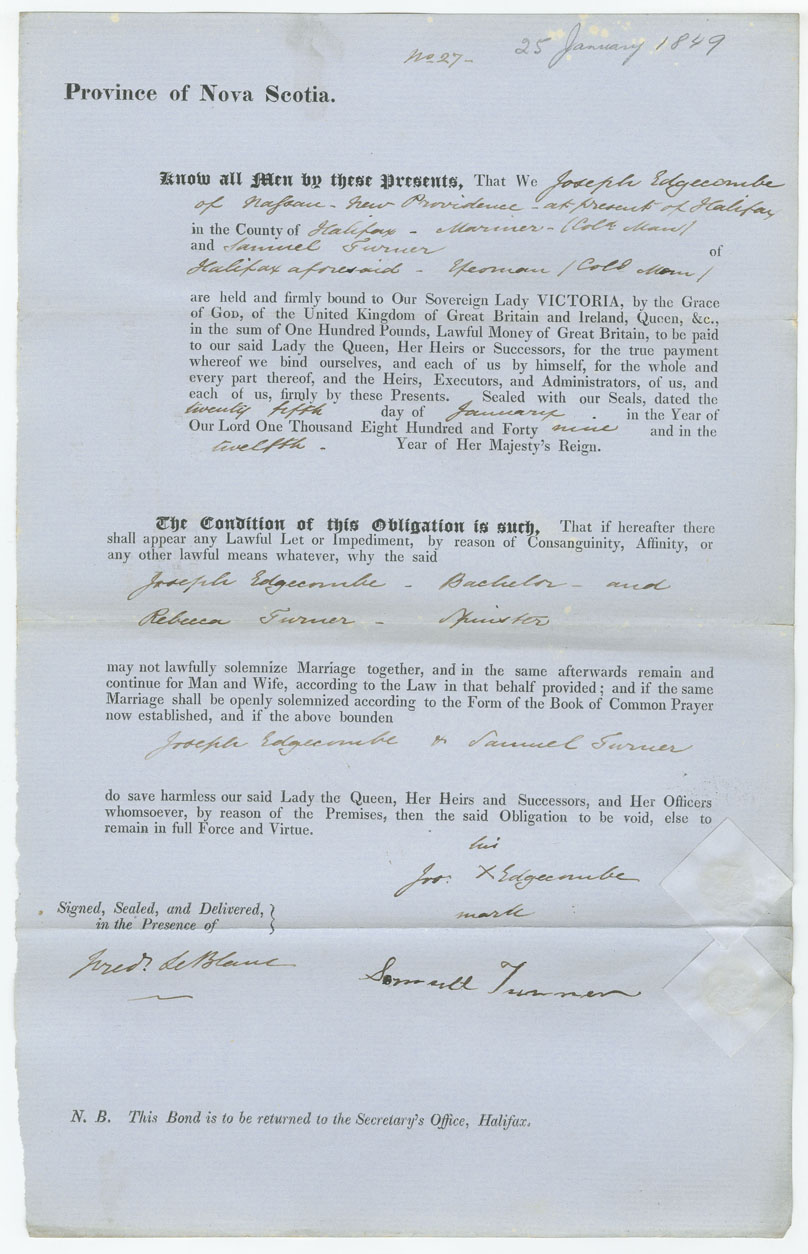 No 27- 25 January 1849
Province of Nova Scotia.
Know all Men by these Presents, That We Joseph Edgecombe
of Nassau - New Providence - at present of Halifax
in the County of Halifax - Mariner - (Cold Man)
and Samuel Turner of
Halifax aforesaid - Yeoman (Cold Man)
are held and firmly bound to Our Sovereign Lady VICTORIA, by the Grace
of GOD, of the United Kingdom of Great Britain and Ireland, Queen, &c.,
in the sum of One Hundred Pounds, Lawful Money of Great Britain, to be paid
to our said Lady the Queen, Her Heirs or Successors, for the true payment
whereof we bind ourselves, and each of us by himself, for the whole and
every part thereof, and the Heirs, Executors, and Administrators, of us, and
each of us, firmly by these Presents. Sealed with our Seals, dated the
twenty fifth day of January . in the Year of
Our Lord One Thousand Eight Hundred and Forty nine and in the
twelfth - Year of Her Majesty's Reign.
The Condition of this Obligation is such, That if hereafter there
shall appear any Lawful Let or Impediment, by reason of Consanguinity, Affinity, or
any other lawful means whatever, why the said
Joseph Edgecombe - Bachelor - and
Rebecca Turner - Spinster
may not lawfully solemnize Marriage together, and in the same afterwards remain and
continue for Man and Wife, according to the Law in that behalf provided; and if the same
Marriage shall be openly solemnized according to the Form of the Book of Common Prayer
now established, and if the above bounden
Joseph Edgecombe & Samuel Turner
do save harmless our said Lady the Queen, Her Heirs and Successors, and Her Officers
whomsoever, by reason of the Premises, then the said Obligation to be void, else to
remain in full Force and Virtue.
his
Jos: X Edgecombe
mark
Signed, Sealed, and Delivered,
in the Presence of
Fredk LeBlanc
Samuell Turner
N. B. This Bond is to be returned to the Secretary's Office, Halifax.